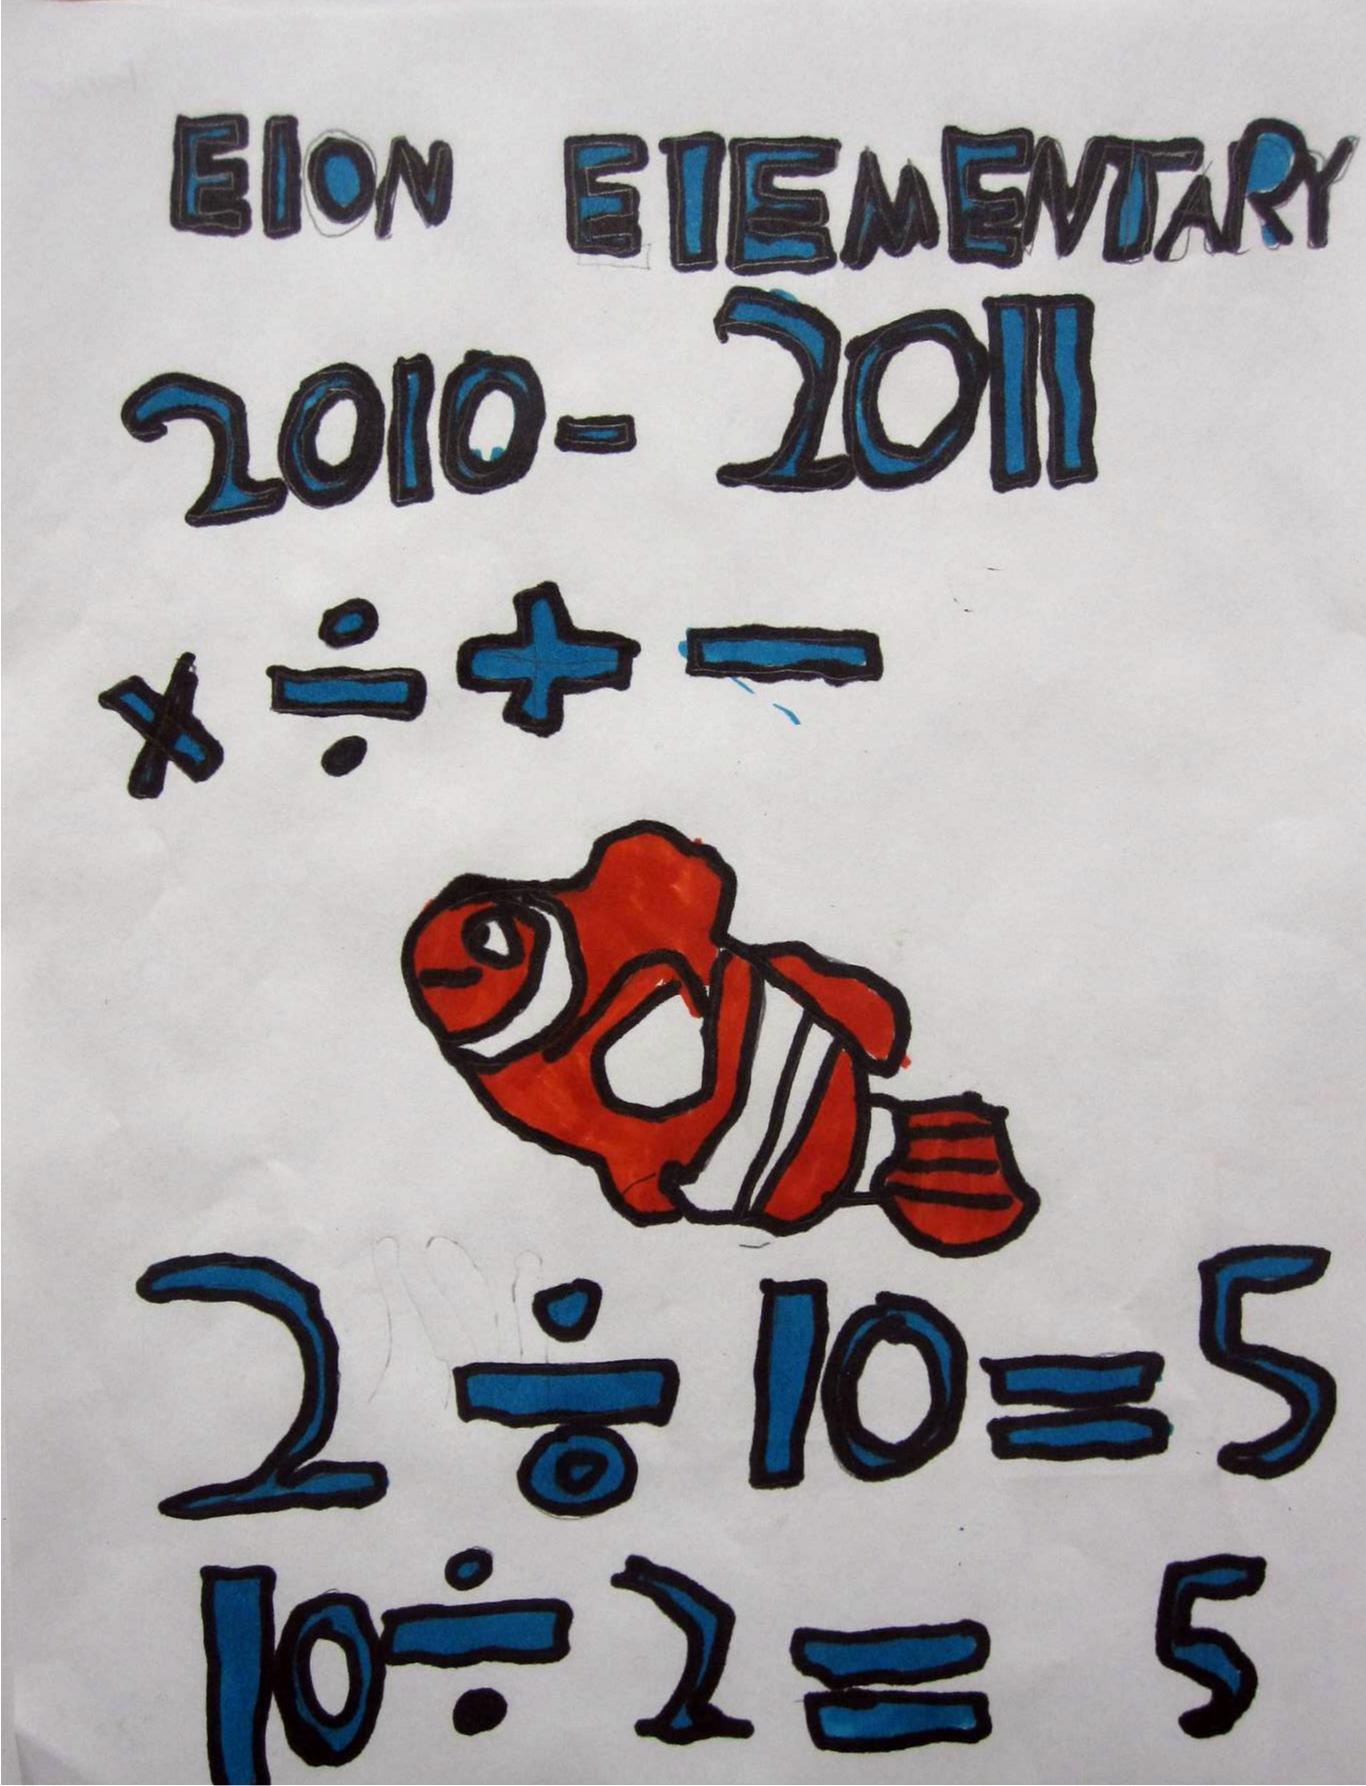 EION EIEMENTARY
2010- 2011
x ÷ + −
2÷10=5
10÷2= 5